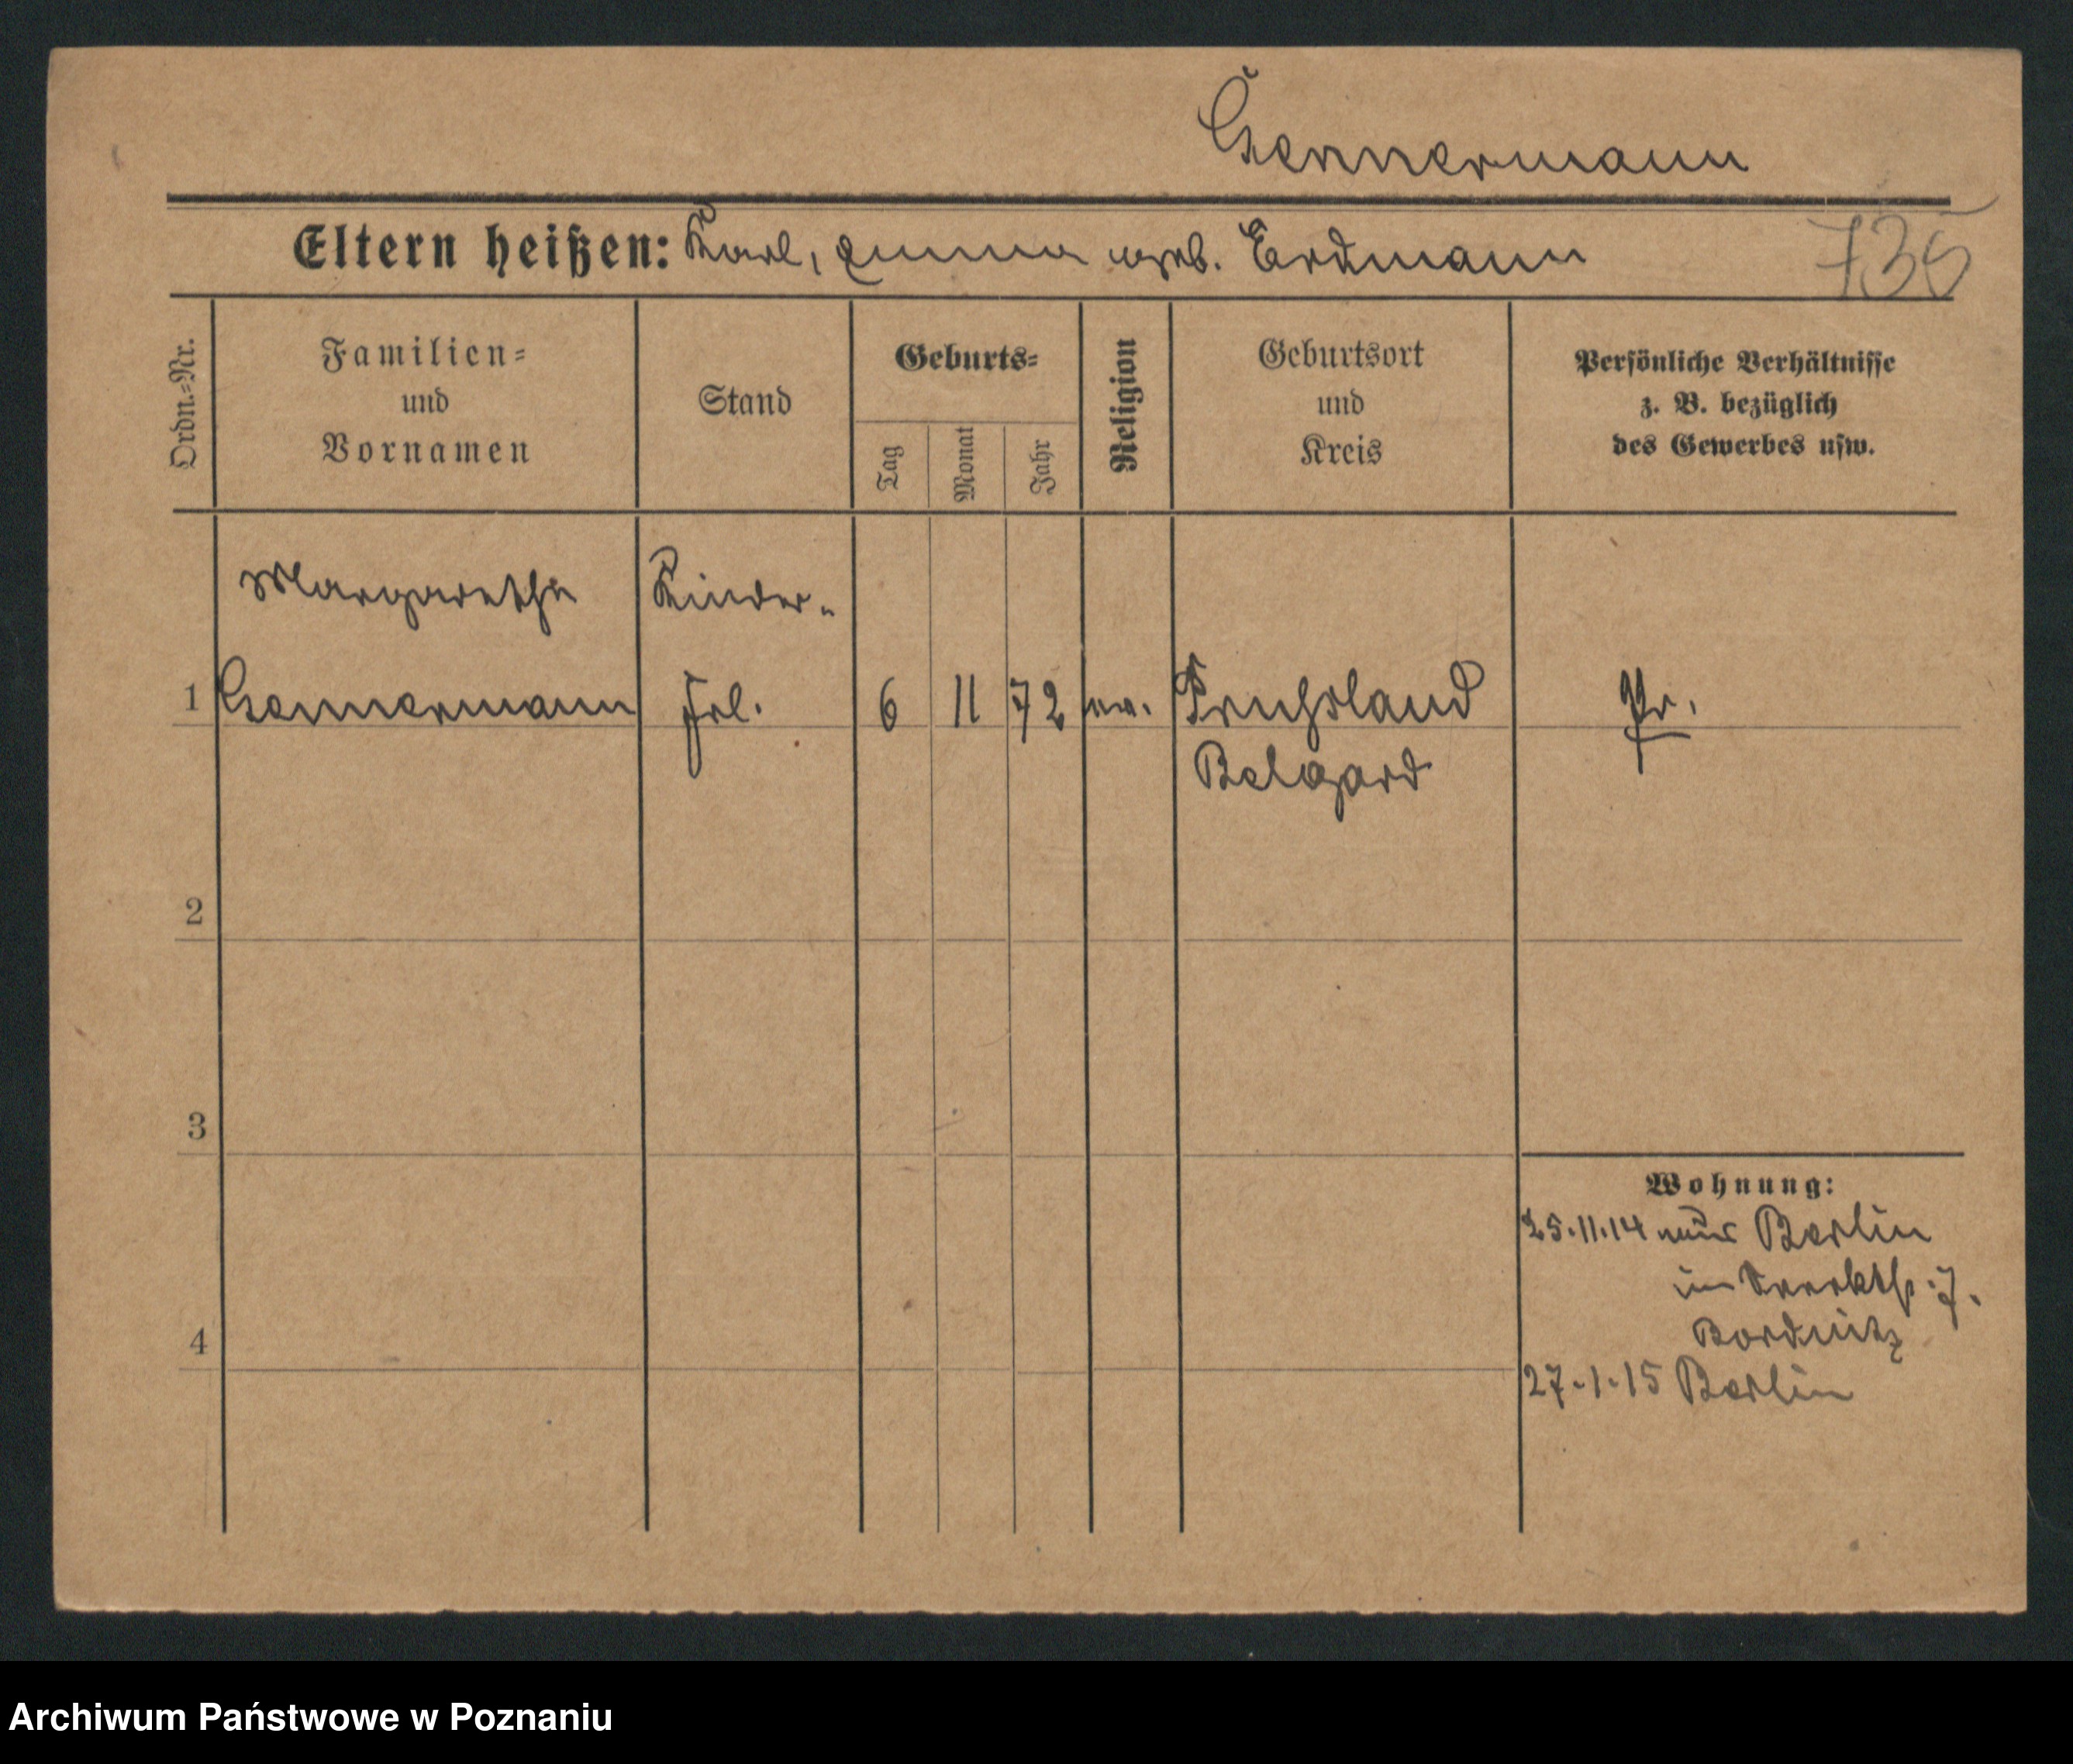 Gennermann
Eltern heißen: Karl, Emma geb. Erdmann
735
Ordn.=Nr.
Familien=
und
Vornamen
Stand
Geburts=
Tag
Monat
Jahr
Religion
Geburtsort
und
Kreis
Persönliche Verhältnisse
z. B. bezüglich
des Gewerbes usw.
Margarethe Kinder=
1 Gennermann Frl. 6 11 72 ev. Pr.
Belgard
2
3
Wohnung:
25.11.14 aus Berlin
7.
4
27.1.15 Berlin
Archiwum Państwowe w Poznaniu